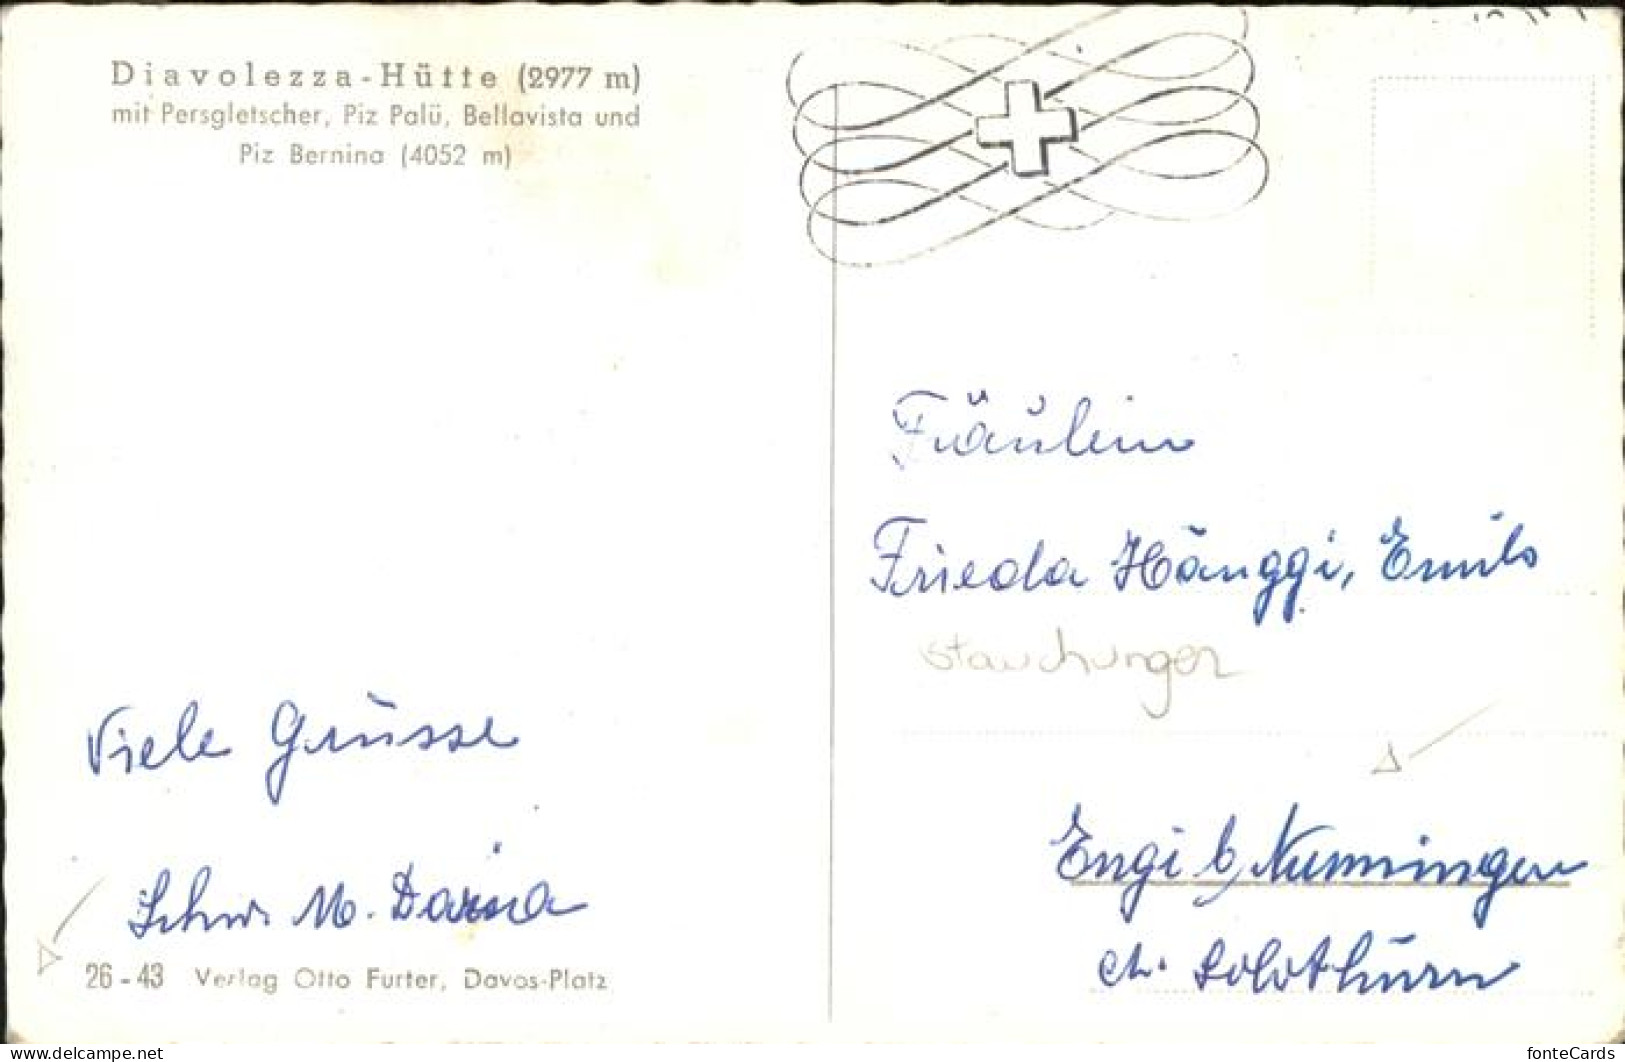 Diavolezza-Hütte (2977 m)
mit Persgletscher, Piz Palü, Bellavista und
Piz Bernina (4052 m)
Fräulein
Frieda Hänggi, Emils
stauchungen
Viele Grüsse
Engi b, Nunningen
Schw. M. Daria
ct. Solothurn
26-43 Verlag Otto Furter, Davos-Platz
www.delcampe.net
fonteCards